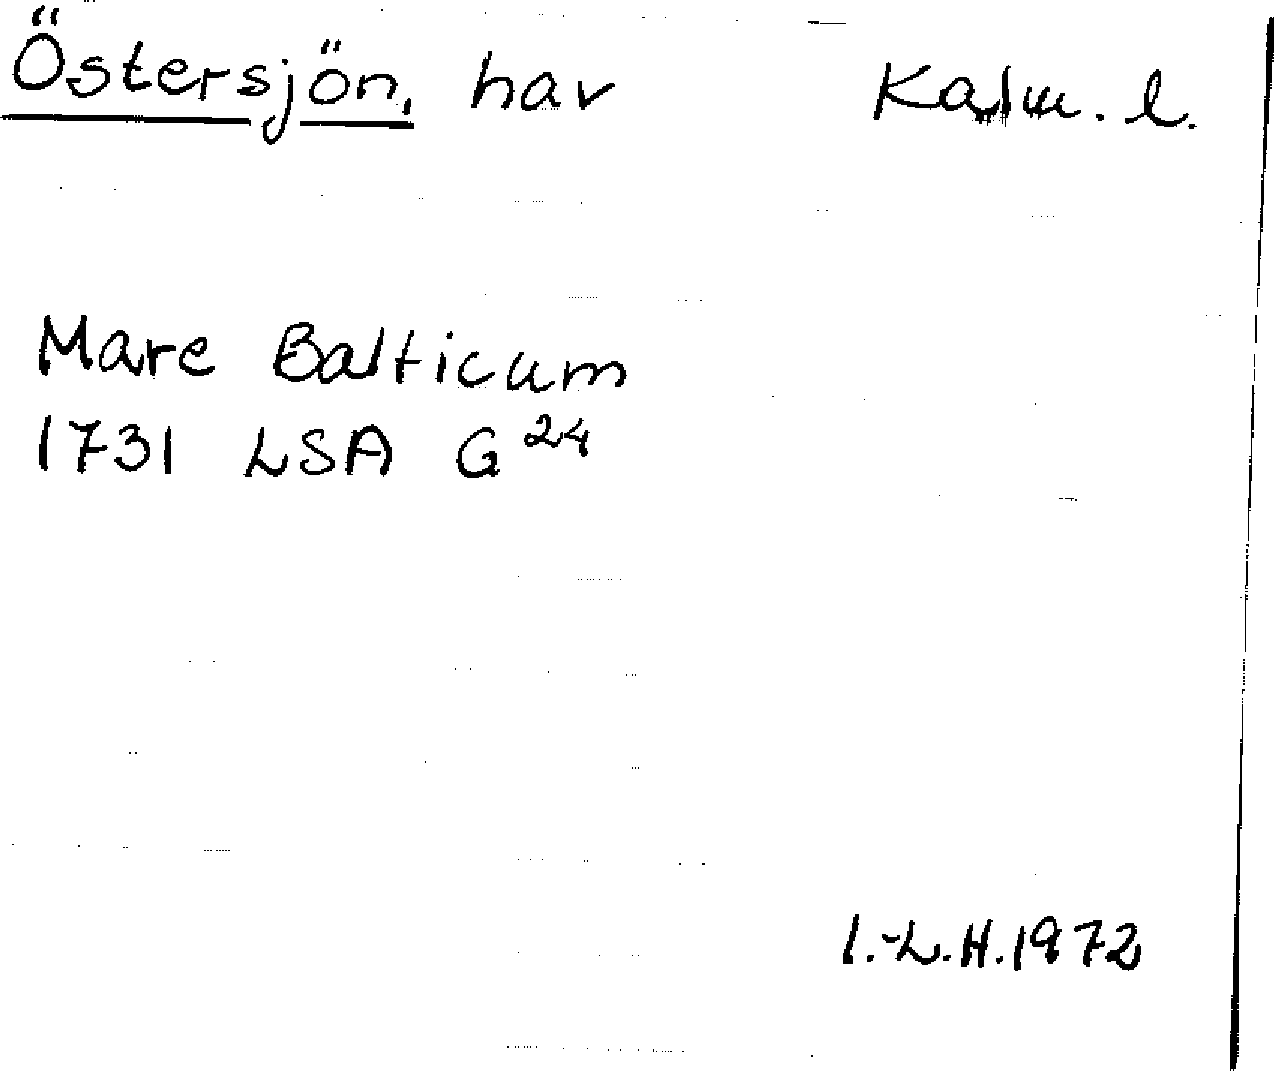 Östersjön, hav Kalm. l.
Mare Balticum
1731 LSA G 24
I.-L.H.1972